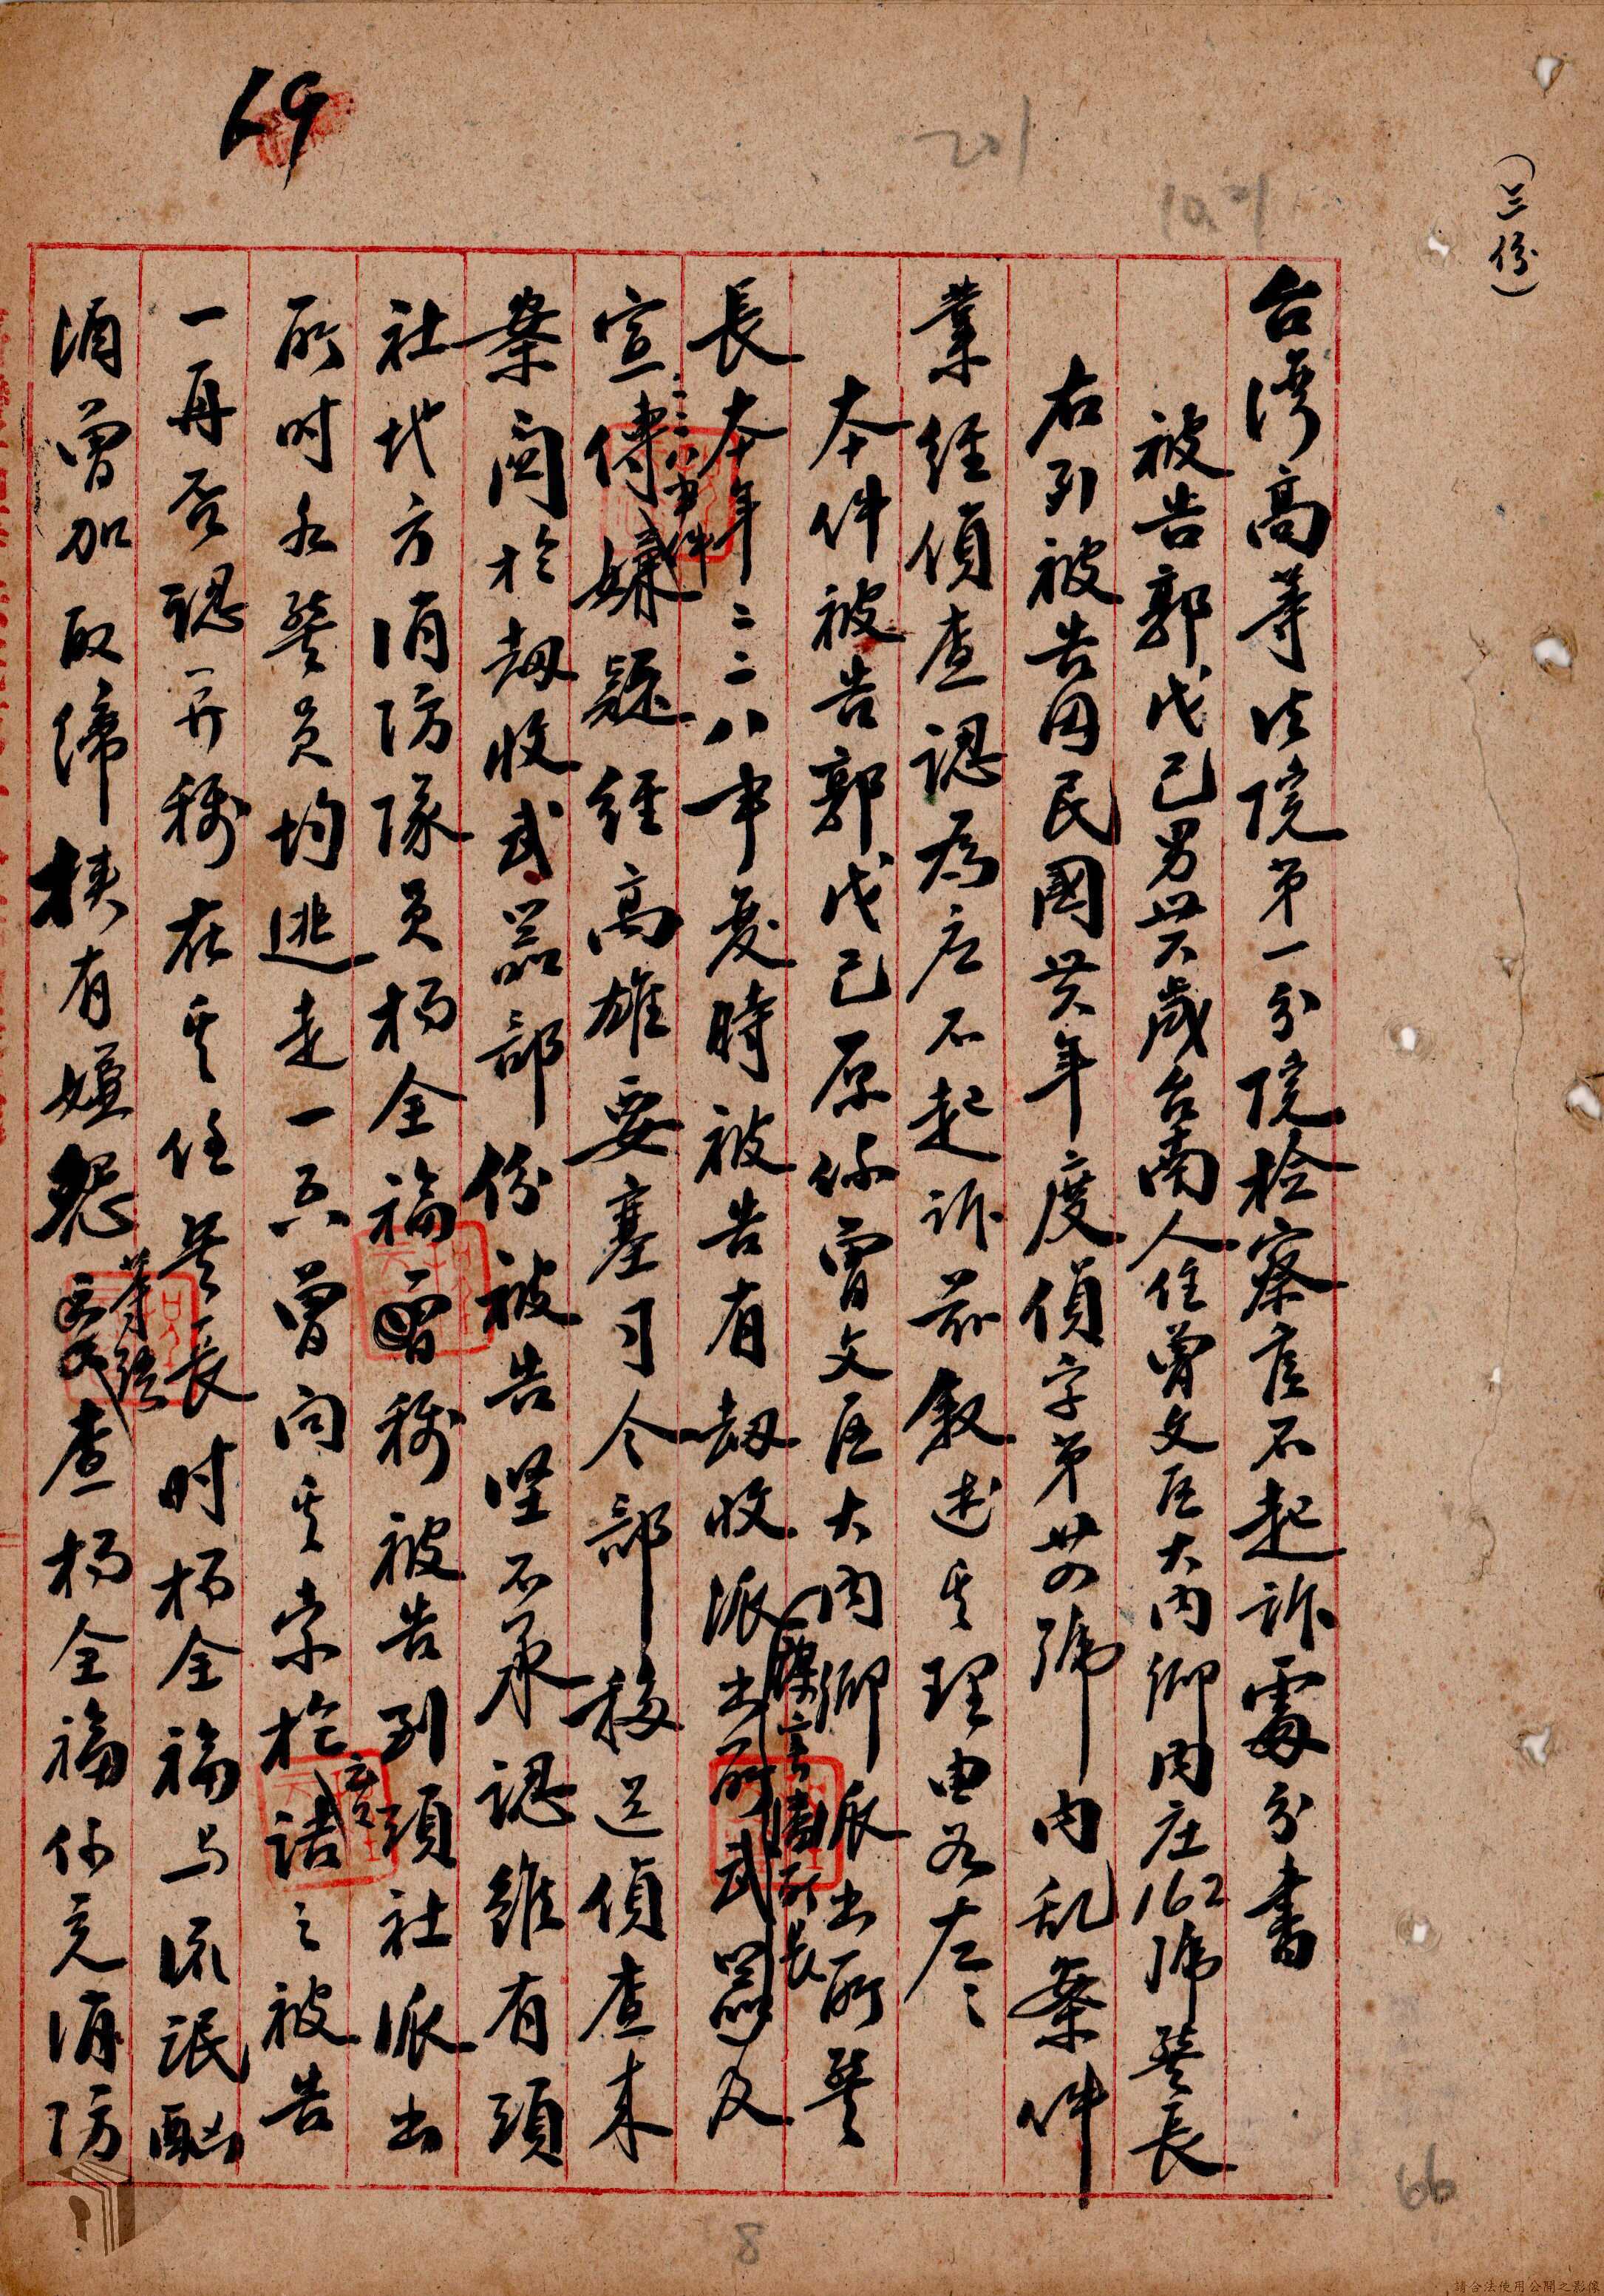 (三份)
台湾高等法院第一分院檢察官不起訴處分書
被告郭戊己男卅六歲台南人住曾文区大內鄉內庄162號警長
右列被告因民國卅六年度偵字第卅四號內乱案件
業經偵查認為应不起訴茲敘述其理由如左:
本件被告郭戊己原係曾文区大內鄉派出所警
長本年二二八事変時被告有劫收派出所武器及
二二八事件
宣傳嫌疑經高雄要塞司令部移送偵查来
案関於劫收武器部份被告堅不承認雖有頭
社地方消防隊員楊全福稱被告到頭社派出
所時公警員均逃走一空曾向其索槍諸之被告
一再否認并稱在其任警長時楊全福与流氓酗
酒曾加取締挾有嫌怨等語查楊全福係充消防
69
201
66
8
請合法使用公開之影像